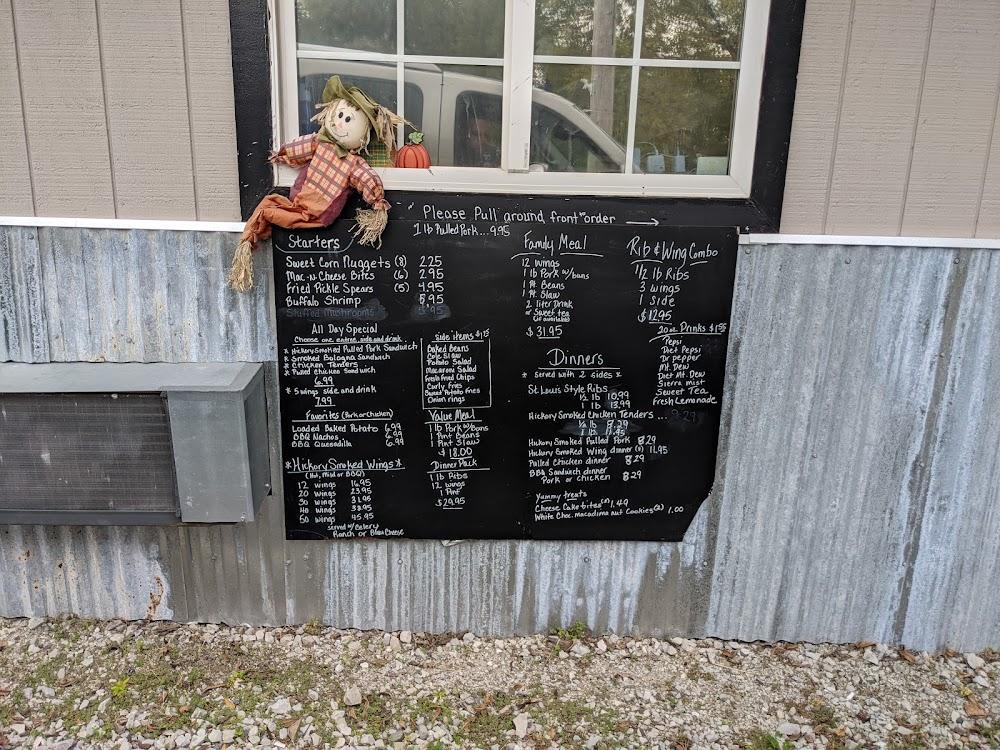 Please Pull around front to order →
1 lb Pulled Pork... 9.95
Starters
Sweet Corn Nuggets (8) 2.25
Mac-N-Cheese Bites (6) 2.95
Fried Pickle Spears (5) 4.95
Buffalo Shrimp 5.95
Stuffed Mushrooms 5.95
All Day Special
Choose one entree, side and drink
* Hickory Smoked Pulled Pork Sandwich
* Smoked Bologna Sandwich
* Chicken Tenders
* Pulled Chicken Sandwich
6.99
* 5 wings side and drink
7.99
Favorites (Pork or Chicken)
Loaded Baked Potato 6.99
BBQ Nachos 6.99
BBQ Quesadilla 6.99
*Hickory Smoked Wings*
(Hot, Mild or BBQ)
12 wings 16.95
20 wings 23.95
30 wings 31.95
40 wings 38.95
50 wings 45.95
served w/ Celery
Ranch or Bleu Cheese
Side items $1.75
Baked Beans
Cole Slaw
Potato Salad
Macaroni Salad
Fresh Fried Chips
Curly Fries
Sweet Potato Fries
Onion rings
Value Meal
1 lb Pork w/buns
1 Pint Beans
1 Pint Slaw
$18.00
Dinner Pack
1 lb Ribs
12 wings
1 Pint
$29.95
Family Meal
12 wings
1 lb Pork w/buns
1 Pt. Beans
1 Pt. Slaw
2 liter Drink
or Sweet tea
(if available)
$31.95
Rib & Wing Combo
1/2 lb Ribs
3 wings
1 Side
$12.95
20 oz Drinks
Pepsi
Diet Pepsi
Dr pepper
Mt. Dew
Diet Mt. Dew
Sierra mist
Sweet Tea
Fresh Lemonade
Dinners
* served with 2 sides *
St Louis Style Ribs
1/2 lb 10.99
1 lb 13.99
Hickory Smoked Chicken Tenders ... 9.29
1/2 lb 8.29
1 lb 11.95
Hickory Smoked Pulled Pork 8.29
Hickory Smoked Wing dinner (8) 11.95
Pulled Chicken dinner 8.29
BBQ Sandwich dinner
Pork or chicken 8.29
Yummy treats
Cheese Cake bites 1.49
White Choc. macadamia nut Cookies (2) 1.00